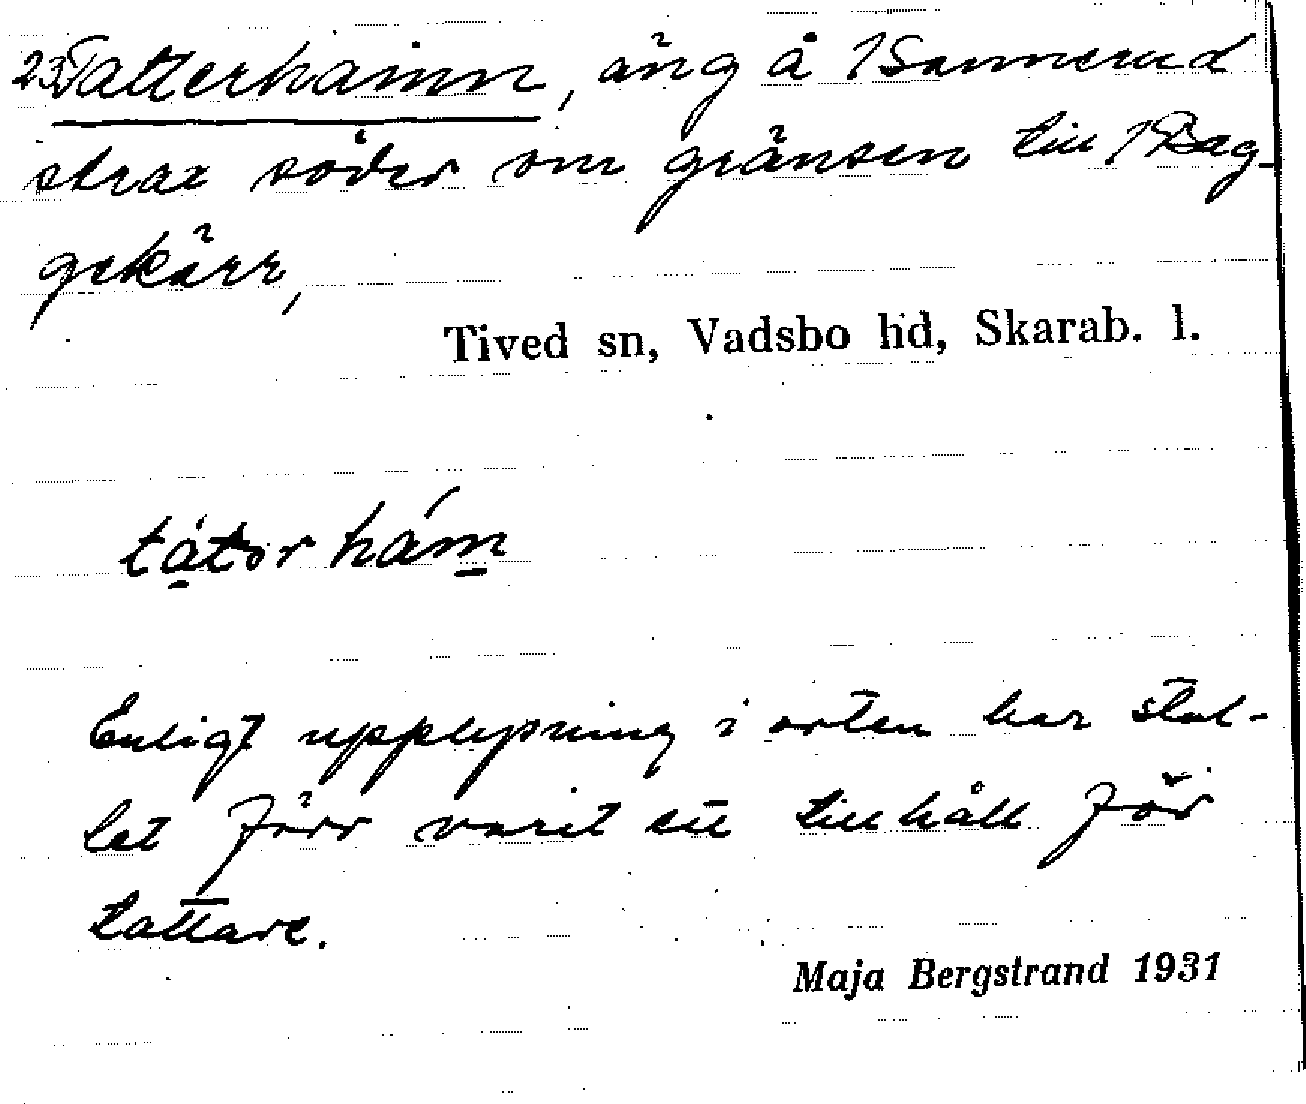 23 Tatterhamn, äng å 1 Sannerud
strax söder om gränsen till 1 Bag-
gekärr,
Tived sn, Vadsbo hd, Skarab. l.
tátor hám
Enligt upplysning i orten har stäl-
let förr varit ett tillhåll för
tattare.
Maja Bergstrand 1931